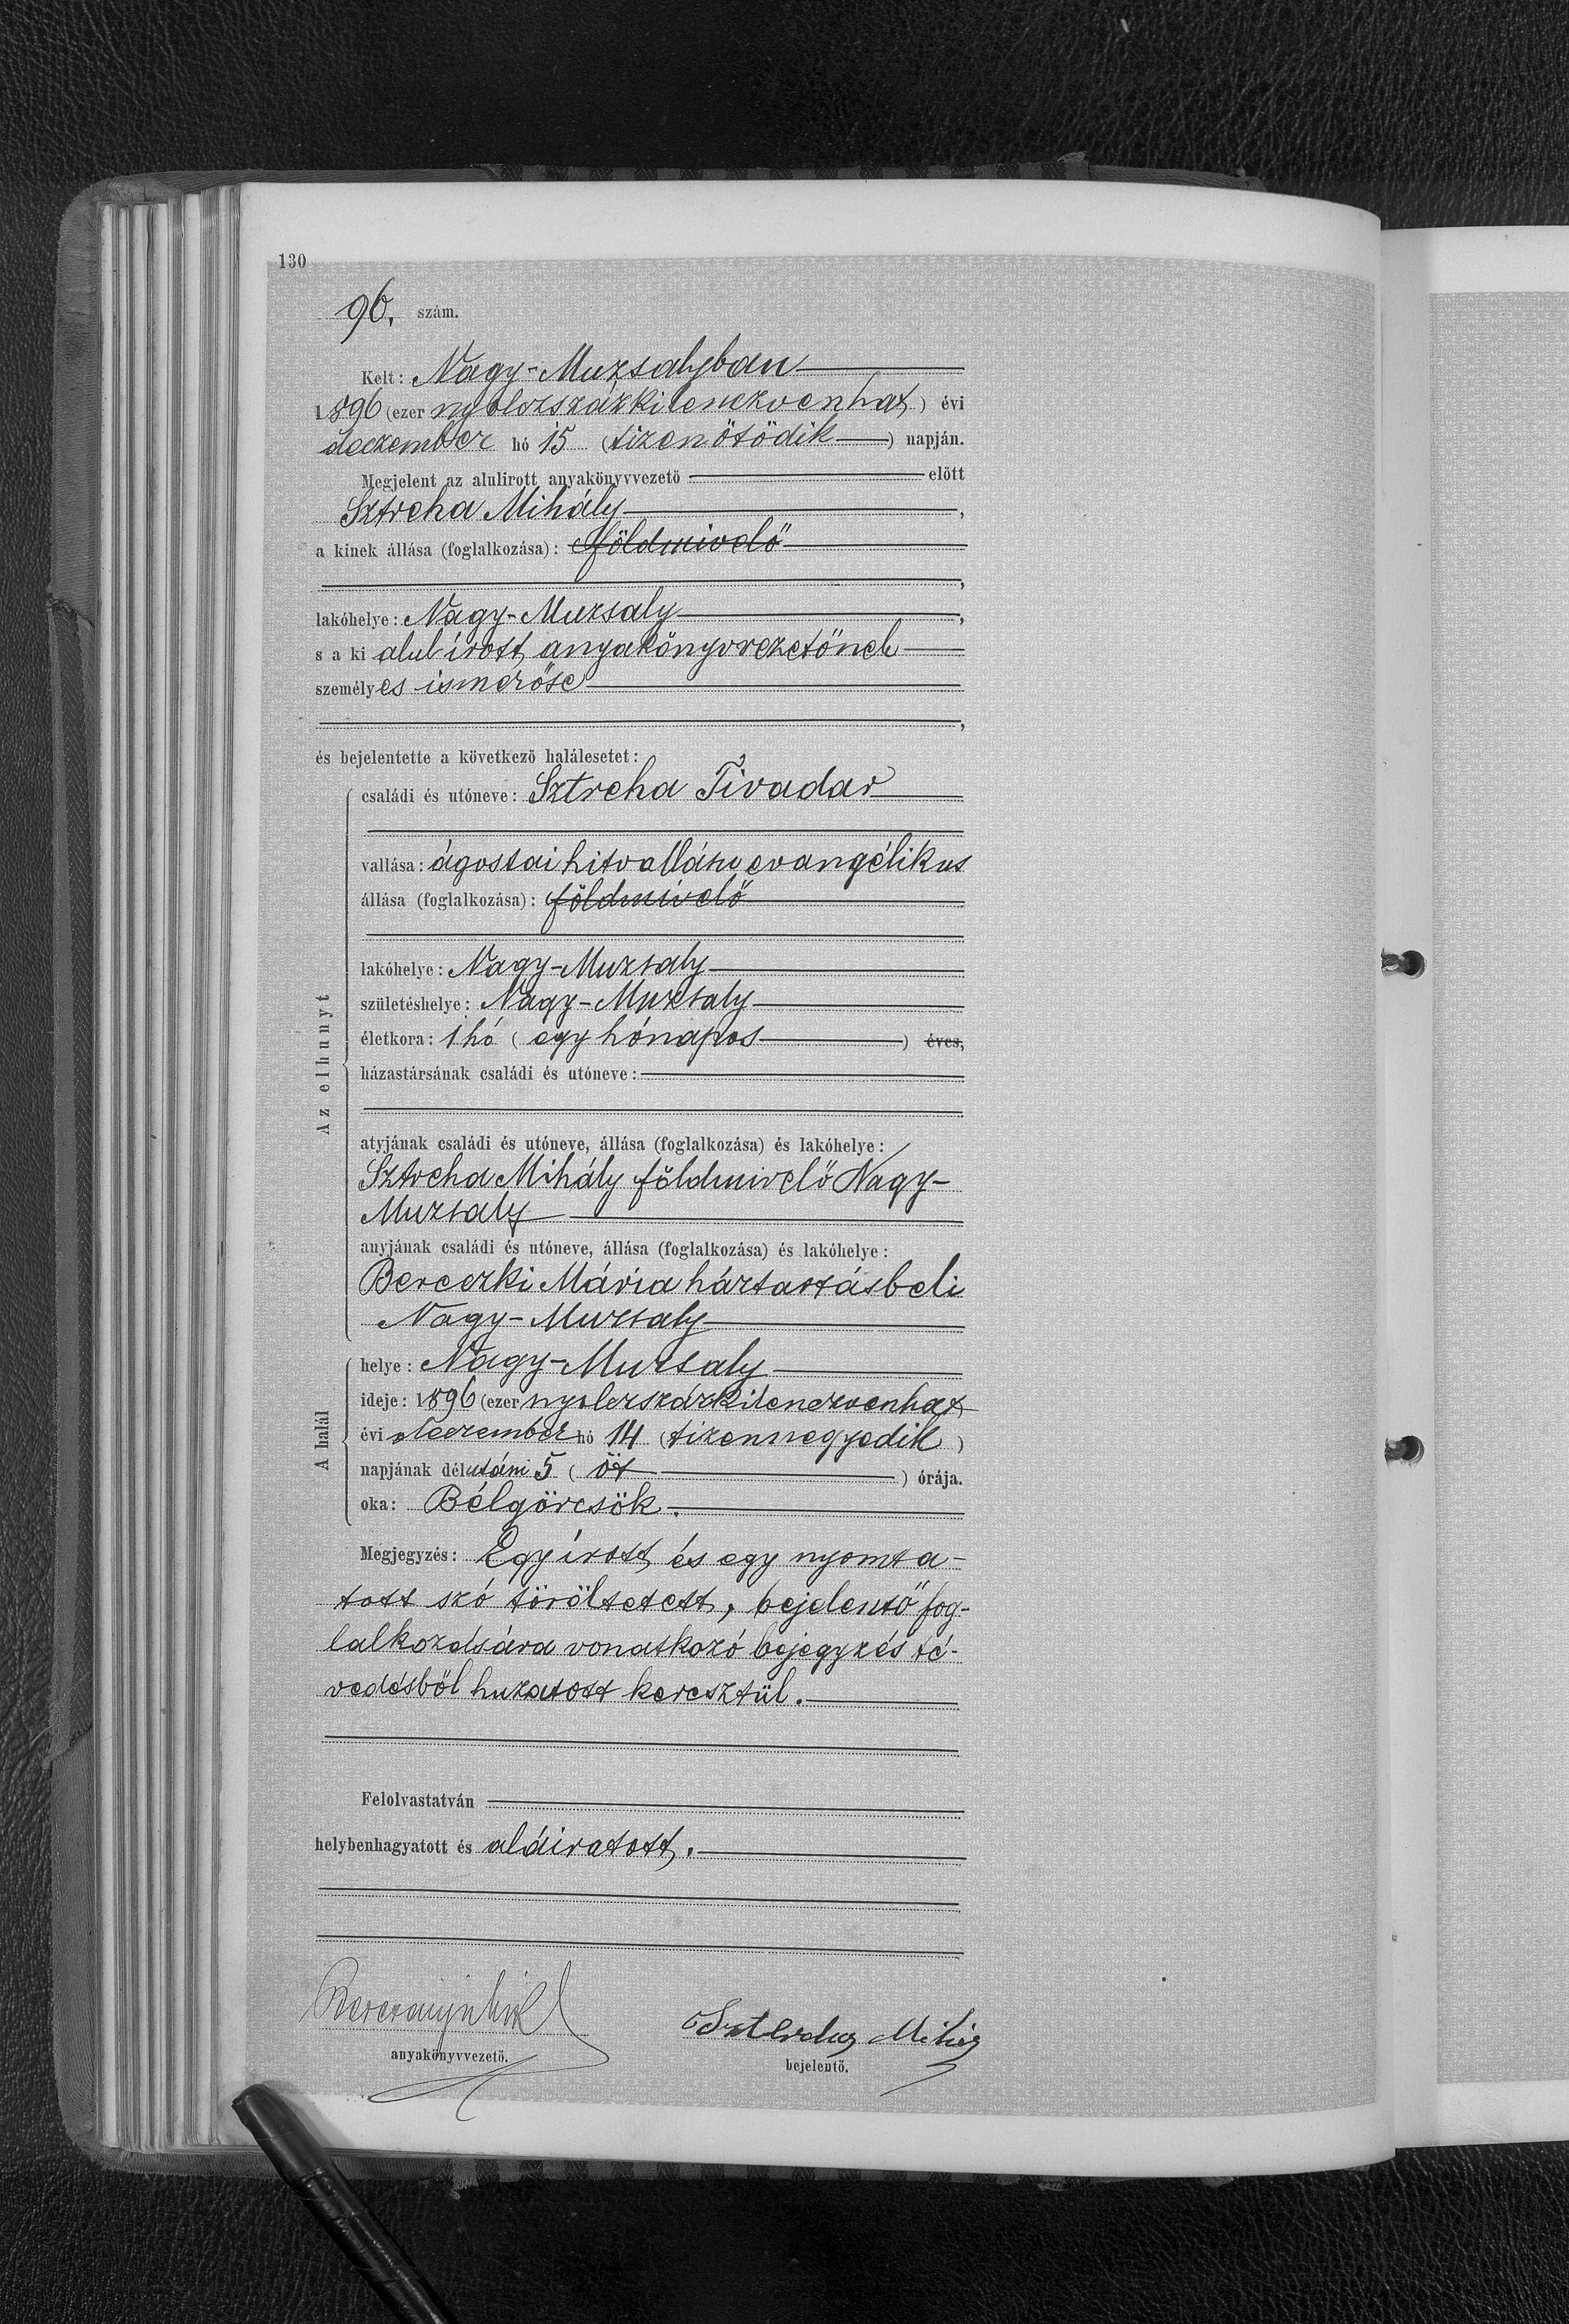 130
96. szám.
Kelt: Nagy-Muzsalyban
1896 (ezer nyolczszázkilenczvenhat) évi
deczember hó 15 (tizenötödik) napján.
Megjelent az alulirott anyakönyvvezető előtt
Sztreha Mihály,
a kinek állása (foglalkozása): földmivelő
,
lakóhelye: Nagy-Muzsaly,
s a ki alulírott anyakönyvvezetőnek
személyes ismerőse
,
és bejelentette a következő halálesetet:
Az elhunyt
családi és utóneve: Sztreha Tivadar
vallása: ágostai hitvallásu evangélikus
állása (foglalkozása): földmivelő
lakóhelye: Nagy-Muzsaly
születéshelye: Nagy-Muzsaly
életkora: 1 hó (egy hónapos) éves,
házastársának családi és utóneve:
atyjának családi és utóneve, állása (foglalkozása) és lakóhelye:
Sztreha Mihály földmivelő Nagy-
Muzsaly
anyjának családi és utóneve, állása (foglalkozása) és lakóhelye:
Bereczki Mária háztartásbeli
Nagy-Muzsaly
A halál
helye: Nagy-Muzsaly
ideje: 1896 (ezer nyolczszázkilenczvenhat)
évi deczember hó 14 (tizennegyedik)
napjának délutáni 5 (öt) órája.
oka: Bélgörcsök.
Megjegyzés: Egy írott és egy nyomta-
tott szó töröltetett, bejelentő fog-
lalkozására vonatkozó bejegyzés té-
vedésből huzatott keresztül.
Felolvastatván
helybenhagyatott és aláiratott.
anyakönyvvezető.
bejelentő.